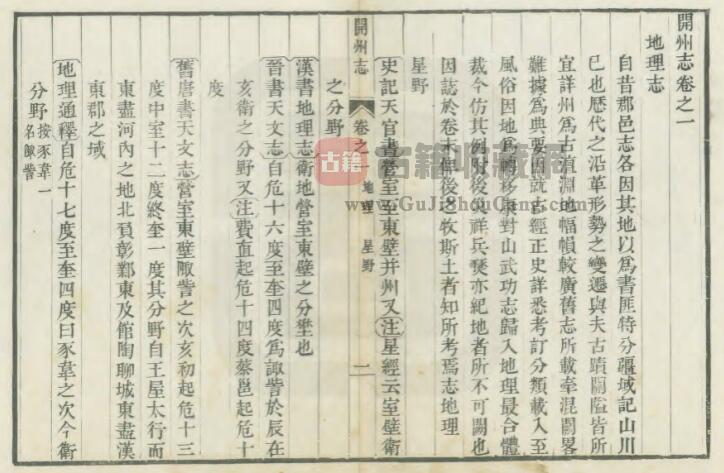 開州志卷之一
地理志
自昔郡邑志各因其地以爲書匪特分疆域記山川
已也歷代之沿革形勢之變遷與夫古蹟關隘皆所
宜詳州爲古澶淵地幅幀較廣舊志所載牽混闕畧
難據爲典要因就古經正史詳悉考訂分類載入至
風俗因地爲轉移康對山武功志歸入地理最合體
裁今仿其例附後與祥兵燹亦紀地者所不可闕也
因誌於卷末俾後之牧斯土者知所考焉志地理
星野
史記天官書營室至東壁并州又注星經云室壁衛
開州志
卷之一
地理 星野
一
之分野
漢書地理志衛地營室東壁之分壄也
晉書天文志自危十六度至奎四度爲諏訾於辰在
亥衛之分野又注費直起危十四度蔡邕起危十
度
舊唐書天文志營室東壁諏訾之次亥初起危十三
度中室十二度終奎一度其分野自王屋太行而
東盡河內之地北負彰鄴東及館陶聊城東盡漢
東郡之域
地理通釋自危十七度至奎四度曰豕韋之次今衛
分野按豕韋一
名諏訾
古籍
古籍收藏网
www.GuJiShouCang.com